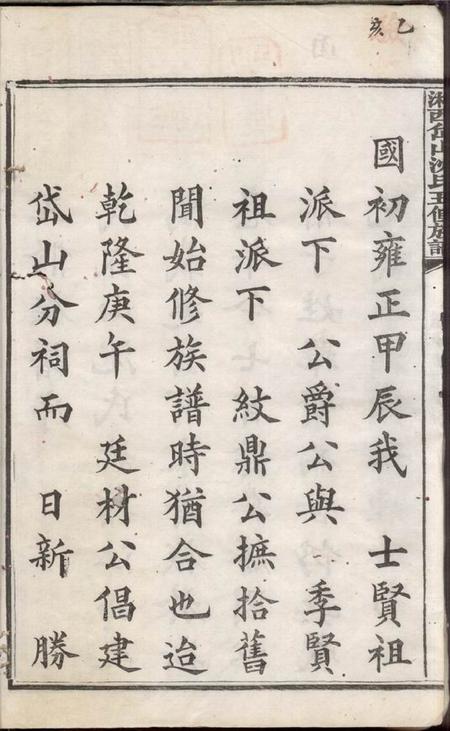 乙亥
國初雍正甲辰我 士賢祖
派下 公爵公與 季賢
祖派下 紋鼎公摭拾舊
聞始修族譜時猶合也迨
乾隆庚午 廷材公倡建
岱山分祠而 日新 勝